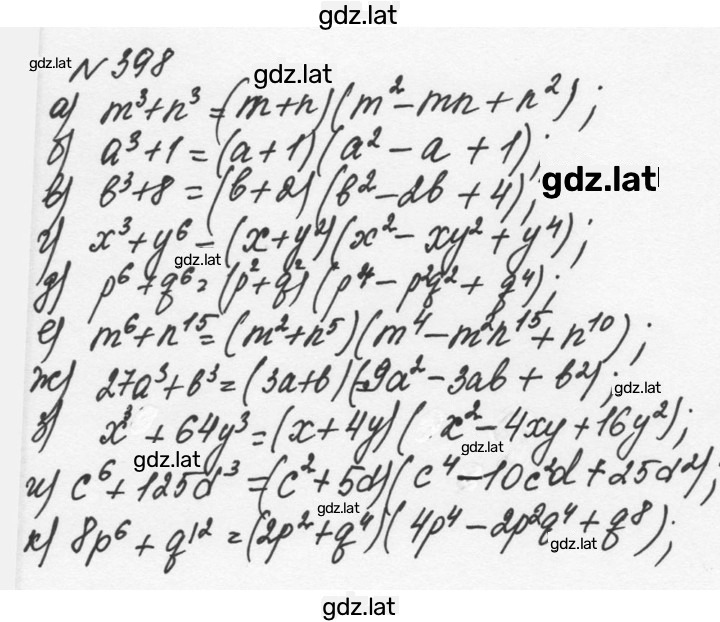 gdz.lat
gdz.lat
N 398
gdz.lat
а) m³+n³ = (m+n)(m²-mn+n²);
б) a³+1 = (a+1)(a²-a+1);
в) b³+8 = (b+2)(b²-2b+4);
gdz.lat
г) x³+y⁶ = (x+y²)(x²-xy²+y⁴);
gdz.lat
д) p⁶+q⁶ = (p²+q²)(p⁴-p²q²+q⁴);
е) m⁶+n¹⁵ = (m²+n⁵)(m⁴-m²n¹⁵+n¹⁰);
ж) 27a³+b³ = (3a+b)(9a²-3ab+b²);
gdz.lat
з) x³+64y³ = (x+4y)(x²-4xy+16y²);
gdz.lat
gdz.lat
и) c⁶+125d³ = (c²+5d)(c⁴-10c²d+25d²);
gdz.lat
к) 8p⁶+q¹² = (2p²+q⁴)(4p⁴-2p²q⁴+q⁸);
gdz.lat
gdz.lat